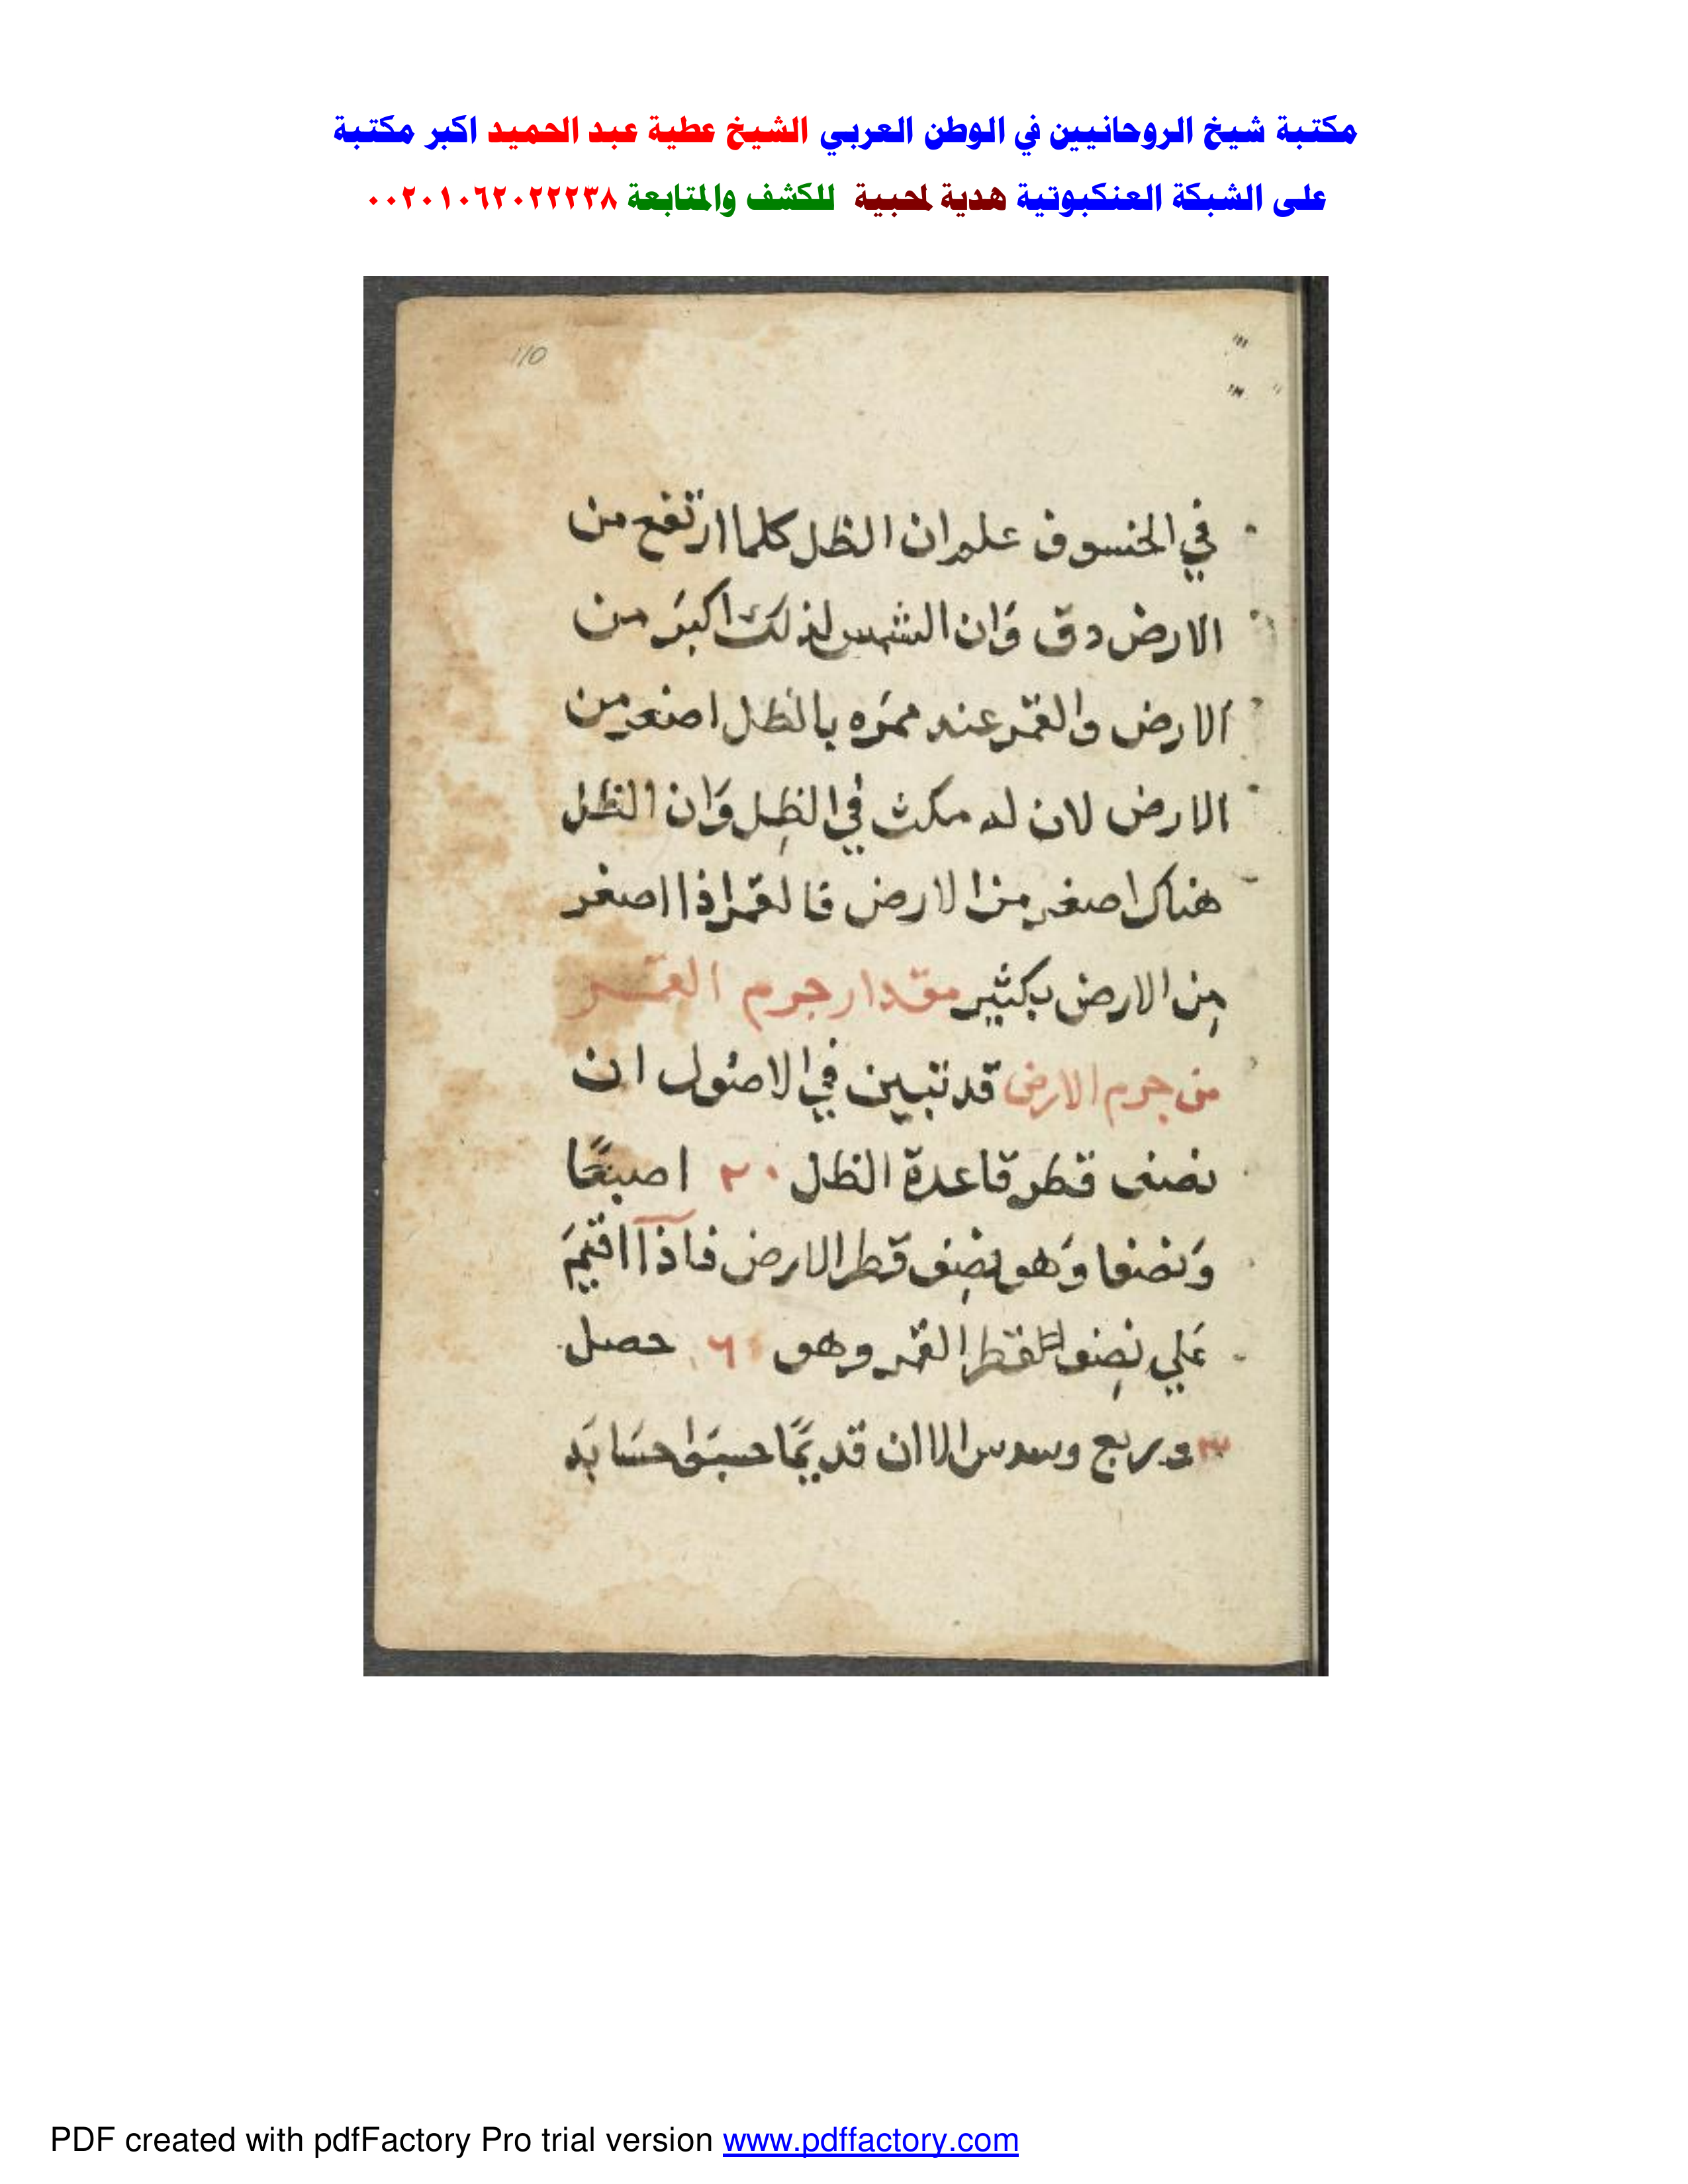 مكتبة شيخ الروحانيين في الوطن العربي الشيخ عطية عبد الحميد اكبر مكتبة
على الشبكة العنكبوتية هدية لمحبية للكشف والمتابعة ٠٠٢٠١٠٦٢٠٢٢٢٣٨
110
في الخسوف علم ان الظل كلما ارتفع من
الارض دق وان الشمس لذلك اكبر من
الارض والقمر عند ممره بالظل اصغر من
الارض لان له مكث في الظل وان الظل
هناك اصغر من الارض فالقمر اذا اصغر
من الارض بكثير مقدار جرم القمر
من جرم الارض قد تبين في الاصول ان
نصف قطر قاعدة الظل ٢٠ اصبعًا
ونصفا وهو نصف قطر الارض فاذا اقتيم
علي نصف قطر القمر وهو ٦ حصل
٣ وربع وسدس الا ان قديمًا حسبوا حسابه
PDF created with pdfFactory Pro trial version www.pdffactory.com